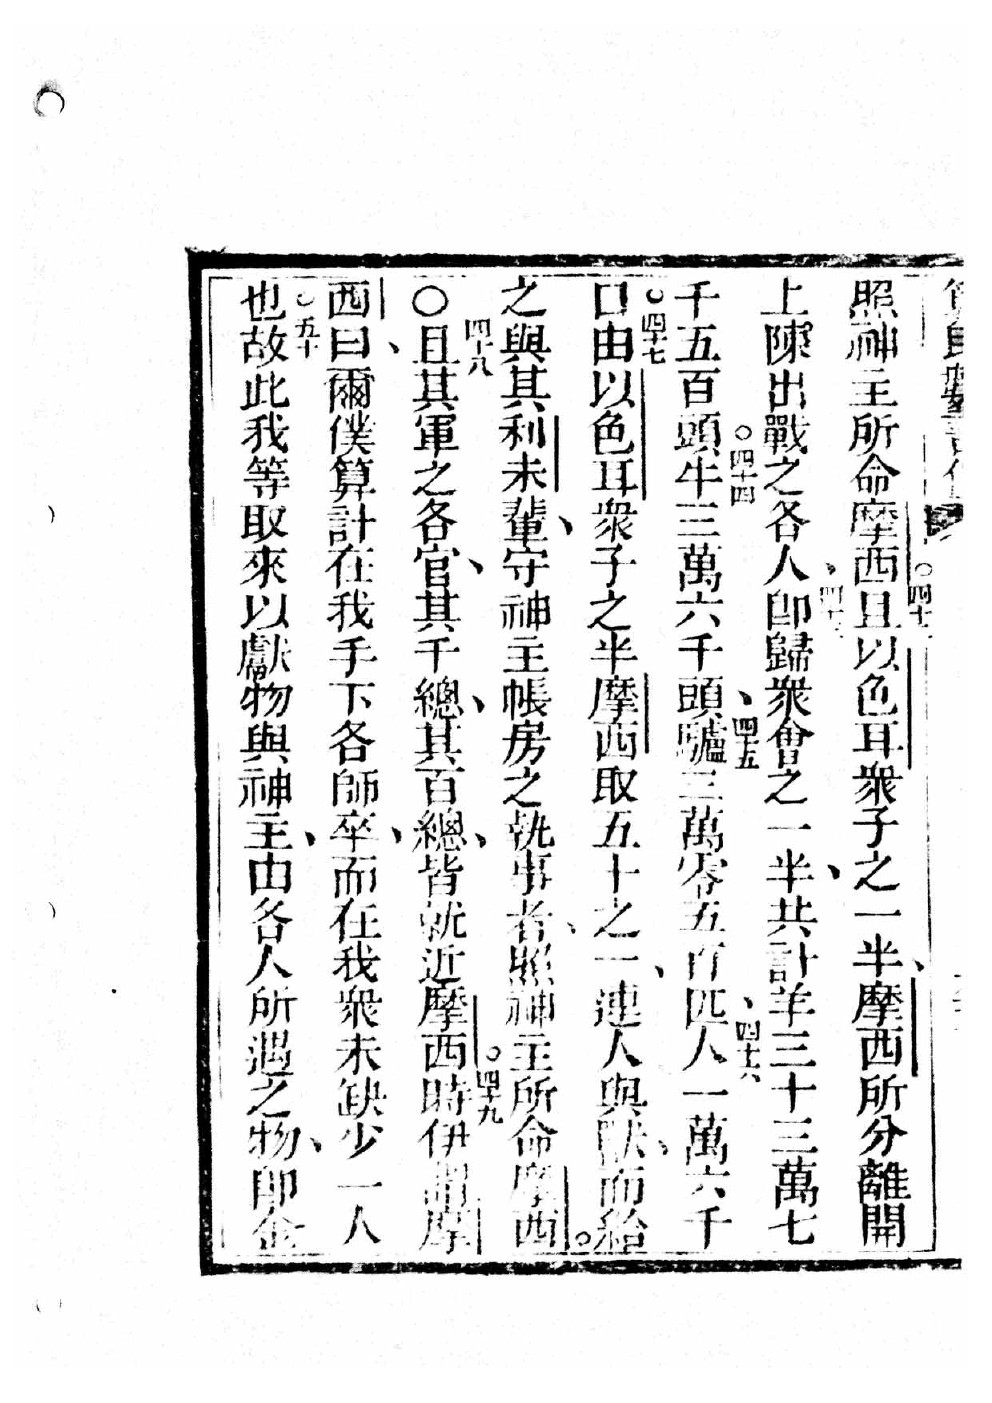 照神主所命摩西○四十二且以色耳衆子之一半、摩西所分離開
上陳出戰之各人、四十三卽歸衆會之一半、共計羊三十三萬七
千五百頭○四十四牛三萬六千頭、四十五驢三萬零五百匹、四十六人一萬六千
○四十七口由以色耳衆子之半摩西取五十之一、連人與獸、而給
之與其利未輩、守神主帳房之執事者、照神主所命摩西。
○四十八且其軍之各官、其千總、其百總、皆就近摩西○四十九時伊謂摩
西曰、爾僕算計在我手下各師卒、而在我衆未缺少一人
也○五十故此我等取來以獻物與神主、由各人所遇之物、卽金